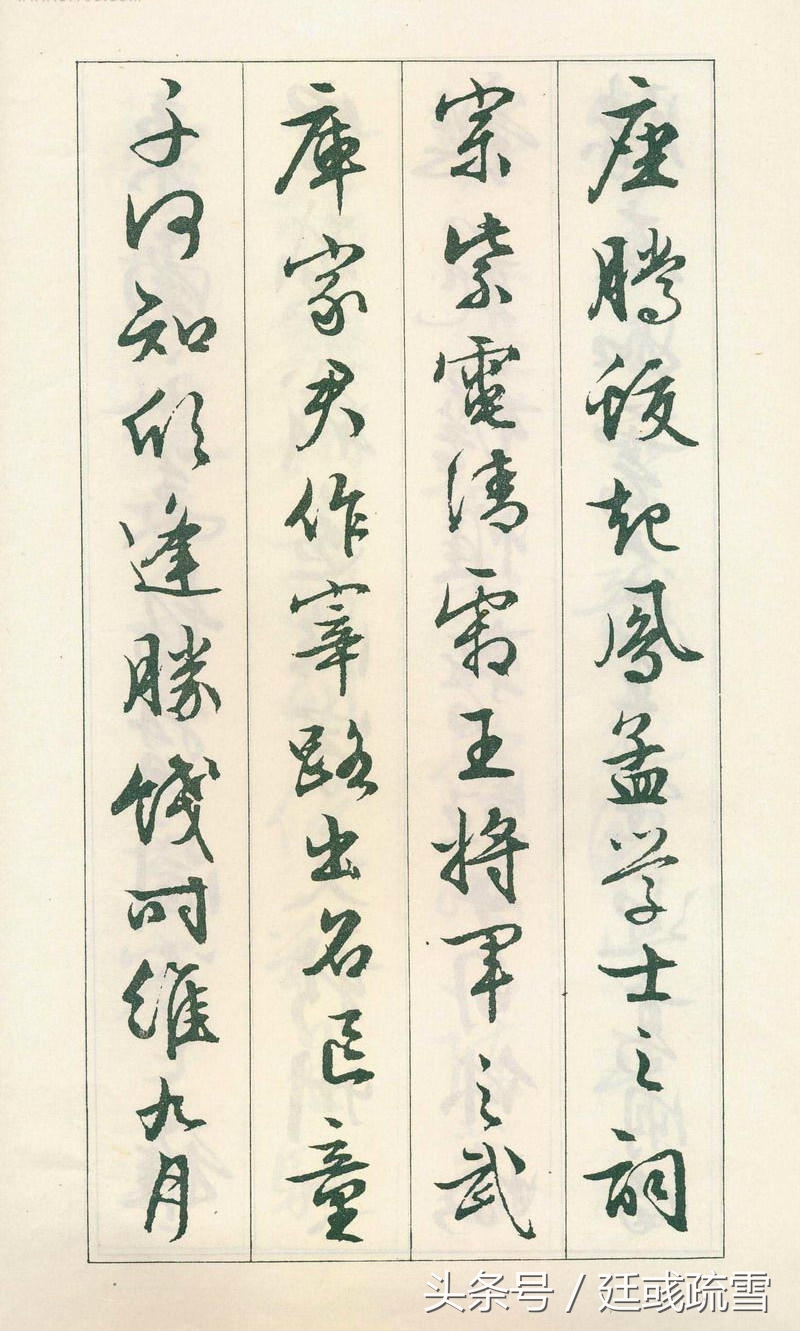 座騰蛟起鳳孟学士之詞
宗紫電清霜王将軍之武
庫家君作宰路出名區童
子何知欣逢勝餞时維九月
头条号 / 廷彧疏雪